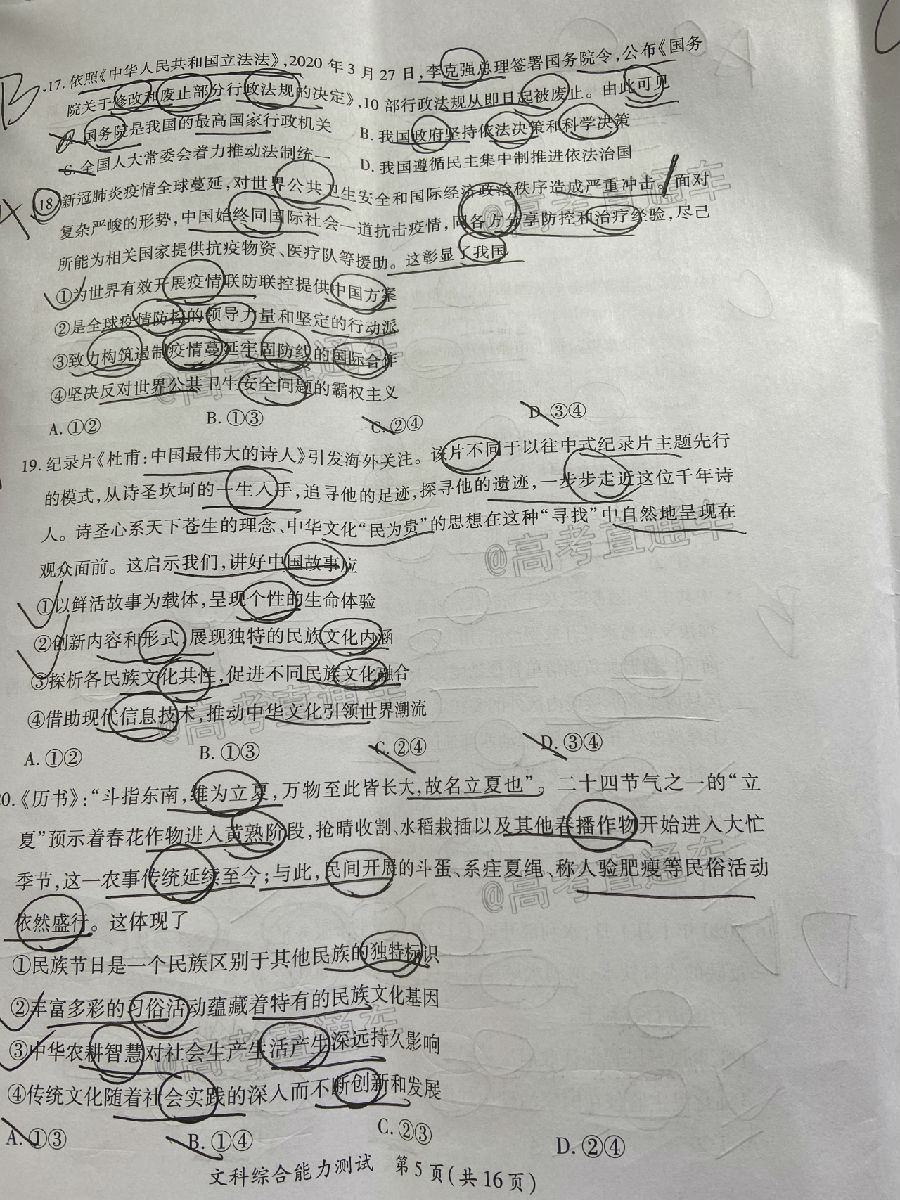 B
17.依照《中华人民共和国立法法》,2020年3月27日,李克强总理签署国务院令,公布《国务
院关于修改和废止部分行政法规的决定》,10部行政法规从即日起被废止。由此可见
A.国务院是我国的最高国家行政机关 B.我国政府坚持依法决策和科学决策
C.全国人大常委会着力推动法制统一 D.我国遵循民主集中制推进依法治国
18.新冠肺炎疫情全球蔓延,对世界公共卫生安全和国际经济政治秩序造成严重冲击。面对
复杂严峻的形势,中国始终同国际社会一道抗击疫情,同各方分享防控和治疗经验,尽己
所能为相关国家提供抗疫物资、医疗队等援助。这彰显了我国
①为世界有效开展疫情联防联控提供中国方案
②是全球疫情防控的领导力量和坚定的行动派
③致力构筑遏制疫情蔓延牢固防线的国际合作
④坚决反对世界公共卫生安全问题的霸权主义
A.①② B.①③ C.②④ D.③④
19.纪录片《杜甫:中国最伟大的诗人》引发海外关注。该片不同于以往中式纪录片主题先行
的模式,从诗圣坎坷的一生入手,追寻他的足迹,探寻他的遗迹,一步步走近这位千年诗
人。诗圣心系天下苍生的理念、中华文化“民为贵”的思想在这种“寻找”中自然地呈现在
观众面前。这启示我们,讲好中国故事应
①以鲜活故事为载体,呈现个性的生命体验
②创新内容和形式,展现独特的民族文化内涵
③探析各民族文化共性,促进不同民族文化融合
④借助现代信息技术,推动中华文化引领世界潮流
A.①② B.①③ C.②④ D.③④
20.《历书》:“斗指东南,维为立夏,万物至此皆长大,故名立夏也”。二十四节气之一的“立
夏”预示着春花作物进入黄熟阶段,抢晴收割、水稻栽插以及其他春播作物开始进入大忙
季节,这一农事传统延续至今;与此,民间开展的斗蛋、系疰夏绳、称人验肥瘦等民俗活动
依然盛行。这体现了
①民族节日是一个民族区别于其他民族的独特标识
②丰富多彩的习俗活动蕴藏着特有的民族文化基因
③中华农耕智慧对社会生产生活产生深远持久影响
④传统文化随着社会实践的深入而不断创新和发展
A.①③ B.①④ C.②③ D.②④
文科综合能力测试 第5页(共16页)
@高考直通车
@高考直通车
@高考直通车
@高考直通车
@高考直通车
@高考直通车